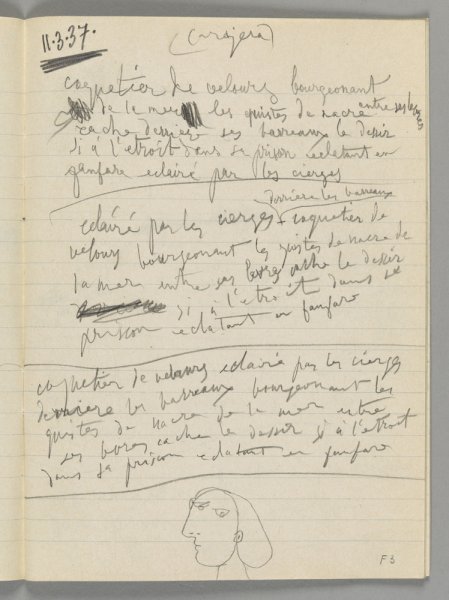 11.3.37.
coquetier de velours bourgeonnant
de la mer les quistes de nacre entre ses bores
cache derriere ses barreaux le desir
si à l'etroit dans sa prison eclatant en
fanfare eclairé par les cierges
derriere les barreaux
eclairé par les cierges coquetier de
velours bourgeonnant les quistes de nacre de
la mer entre ses bores cache le desir
si à l'etroit dans sa
prison eclatant en fanfare
coquetier de velours eclairé par les cierges
derriere les barreaux bourgeonnant les
quistes de nacre de la mer entre
ses bores cache le desir si à l'etroit
dans sa prison eclatant en fanfare
F 3